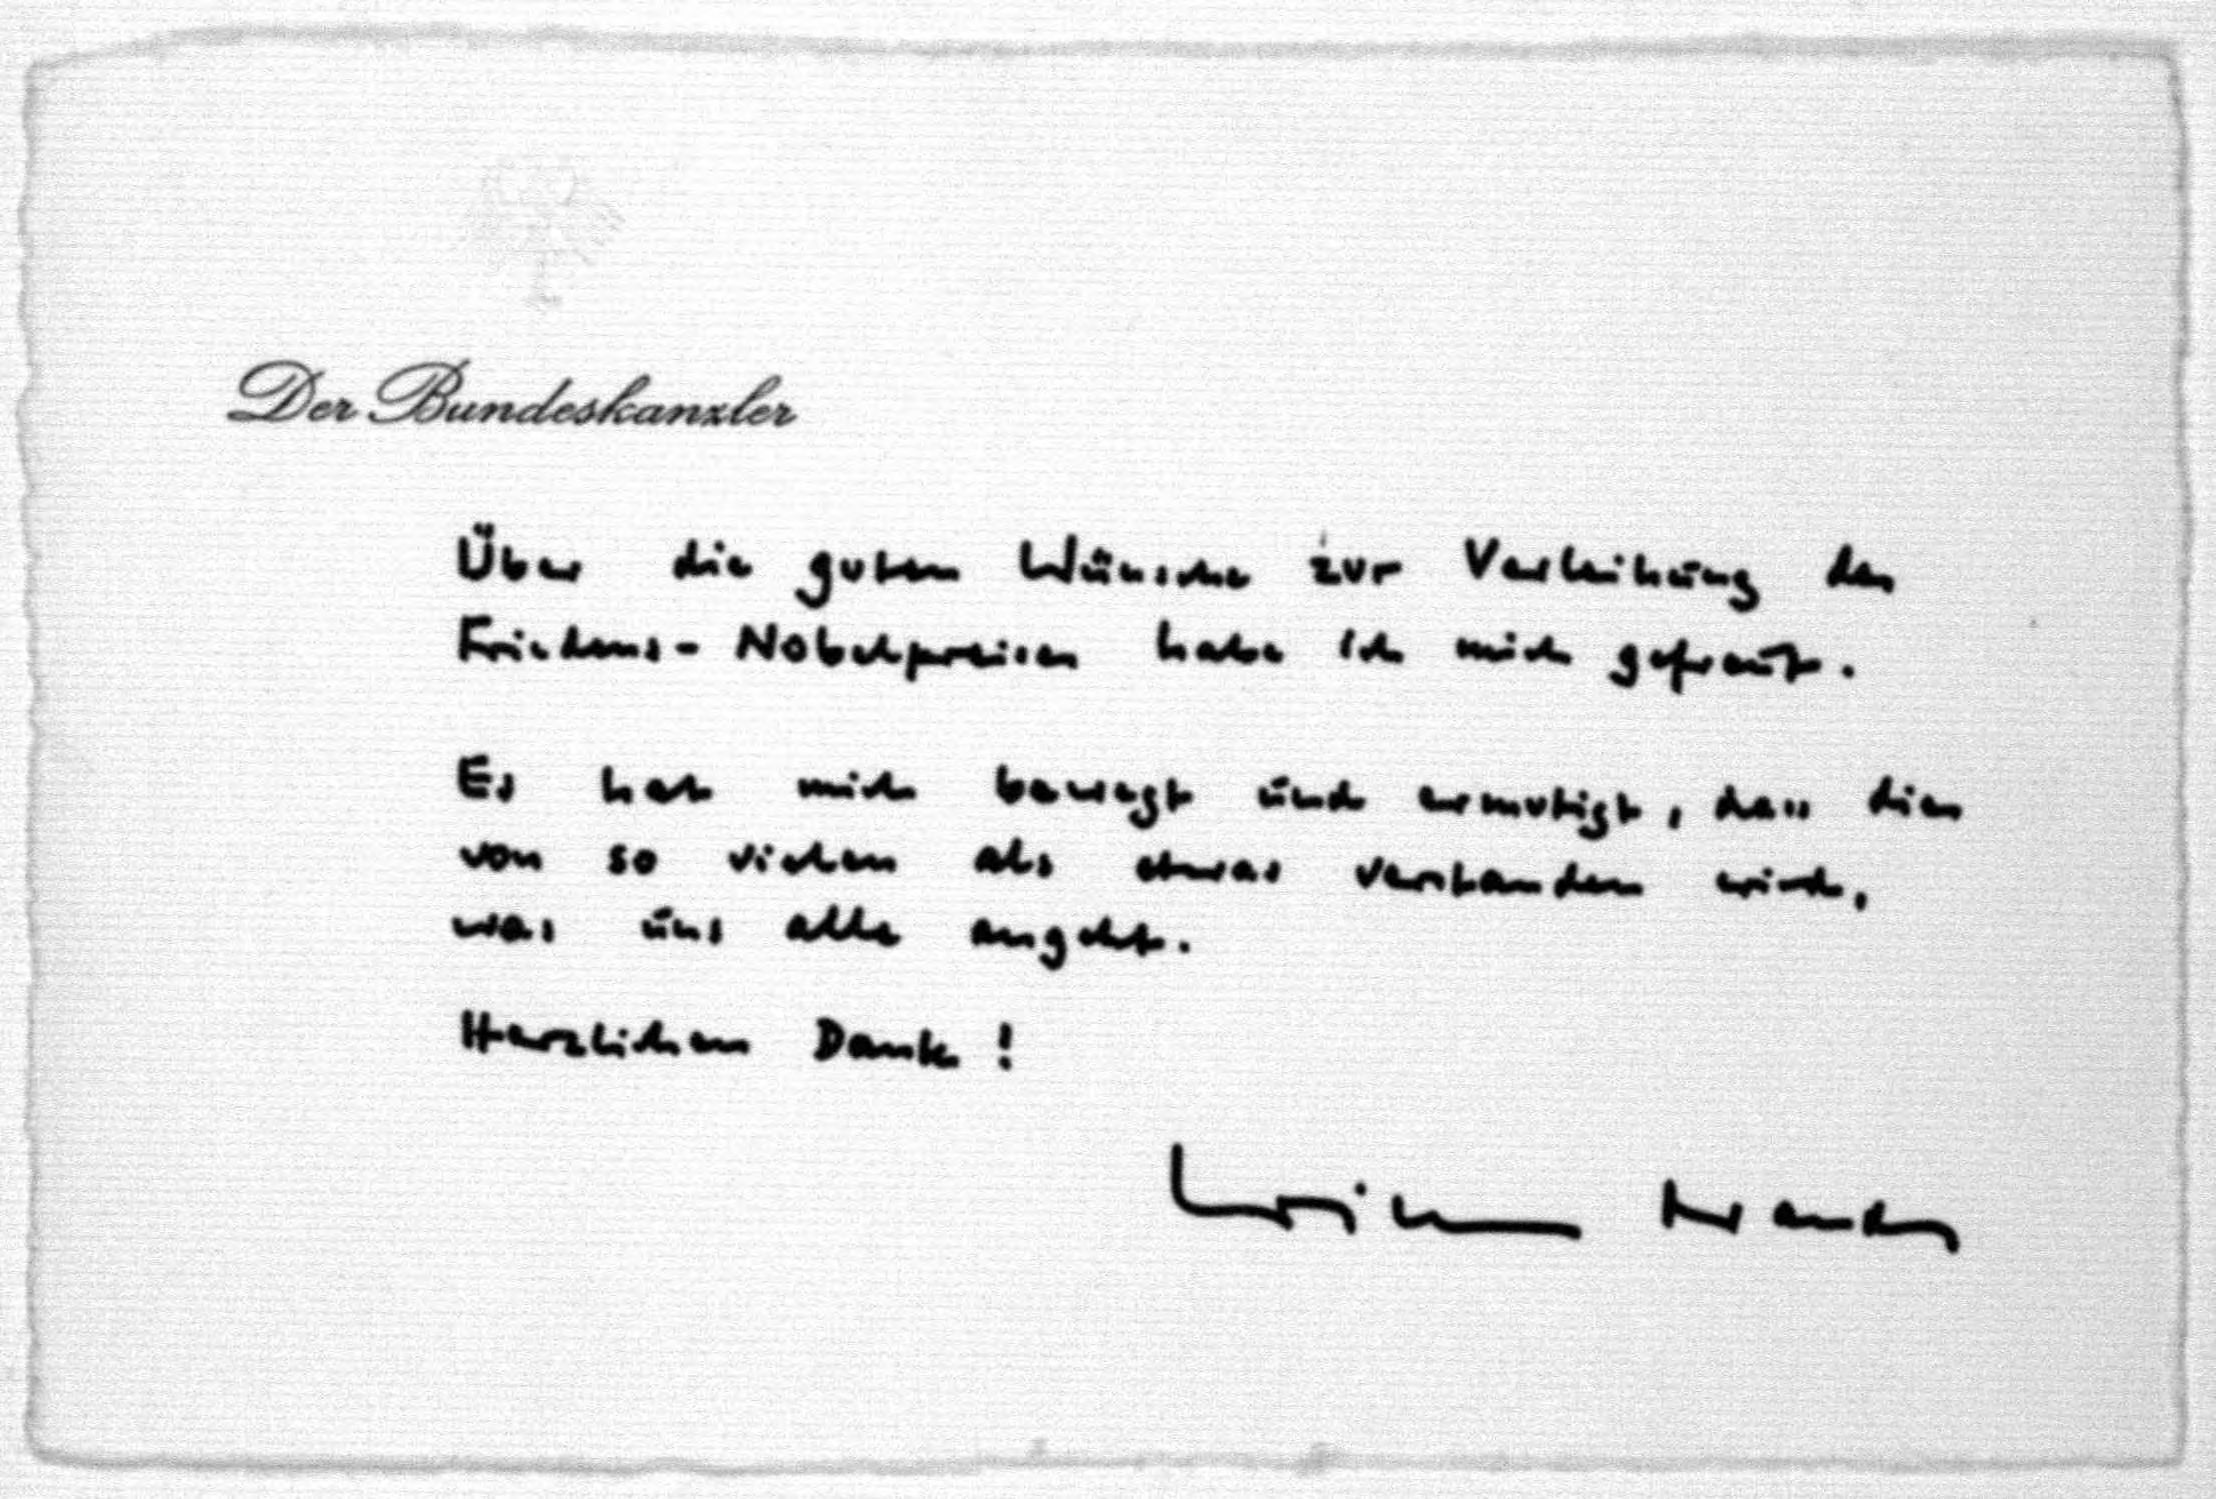 Der Bundeskanzler
Über die guten Wünsche zur Verleihung des
Friedens-Nobelpreises habe ich mich gefreut.
Es hat mich bewegt und ermutigt, dass dies
von so vielen als etwas verstanden wird,
was uns alle angeht.
Herzlichen Dank!
Willy Brandt